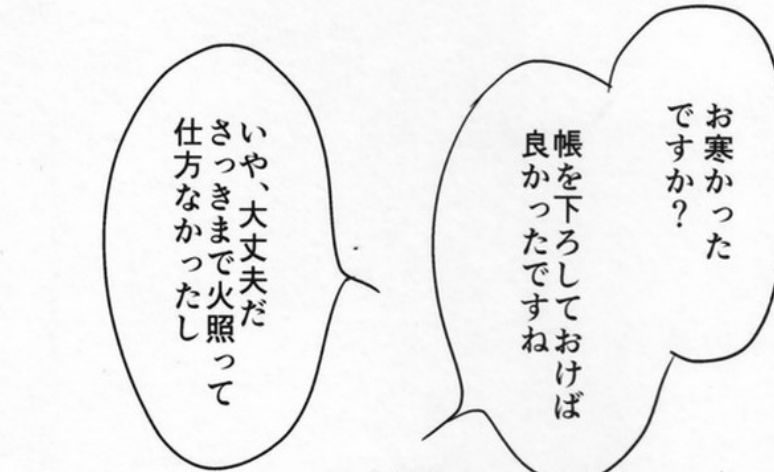 お寒かった
ですか?
帳を下ろしておけば
良かったですね
いや、大丈夫だ
さっきまで火照って
仕方なかったし